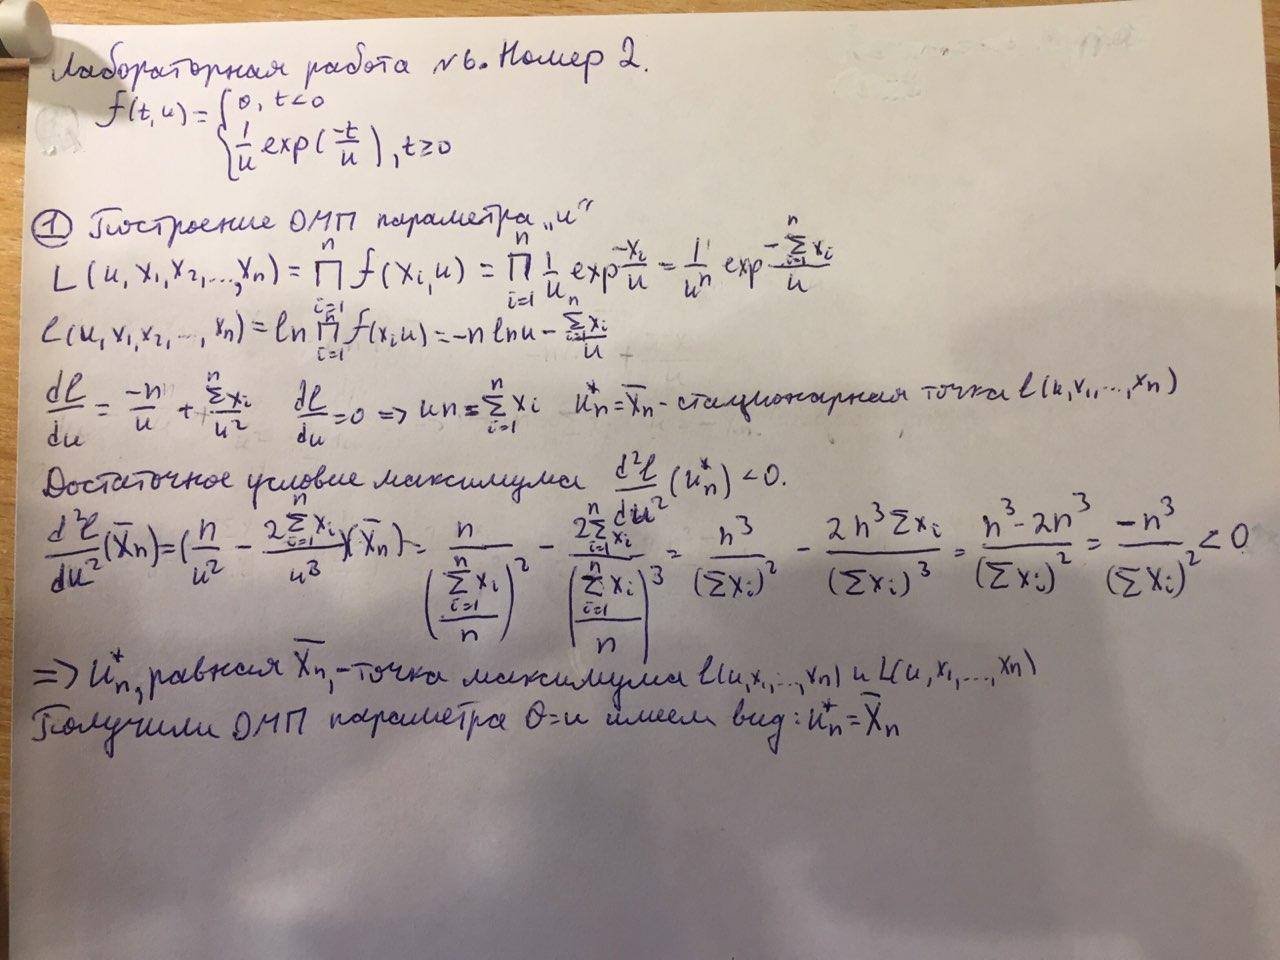 Лабораторная работа №6. Номер 2.
f(t,u) = { 0, t<0
{ 1/u exp(-t/u), t≥0
① Построение ОМП параметра „u“
L(u, x₁, x₂, ..., xₙ) = ∏ᵢ₌₁ⁿ f(xᵢ, u) = ∏ᵢ₌₁ⁿ 1/u exp -xᵢ/u = 1/uⁿ exp -∑ᵢ₌₁ⁿ xᵢ/u
ℓ(u, x₁, x₂, ..., xₙ) = ln ∏ᵢ₌₁ⁿ f(xᵢ u) = -n ln u - ∑ᵢ₌₁ⁿ xᵢ/u
dℓ/du = -n/u + ∑ⁿ xᵢ/u² dℓ/du = 0 => un = ∑ᵢ₌₁ⁿ xᵢ u*ₙ = X̄ₙ - стационарная точка ℓ(u, x₁, ..., xₙ)
Достаточное условие максимума d²ℓ/du² (u*ₙ) < 0.
d²ℓ/du² (X̄ₙ) = (n/u² - 2∑ᵢ₌₁ⁿ xᵢ/u³)(X̄ₙ) = n/(∑ᵢ₌₁ⁿ xᵢ/n)² - 2∑ᵢ₌₁ⁿ xᵢ/(∑ᵢ₌₁ⁿ xᵢ/n)³ = n³/(∑xᵢ)² - 2n³∑xᵢ/(∑xᵢ)³ = n³-2n³/(∑xᵢ)² = -n³/(∑xᵢ)² < 0
=> u*ₙ, равная X̄ₙ, - точка максимума ℓ(u, x₁, ..., xₙ) и L(u, x₁, ..., xₙ)
Получили ОМП параметра θ=u имеем вид: u*ₙ = X̄ₙ